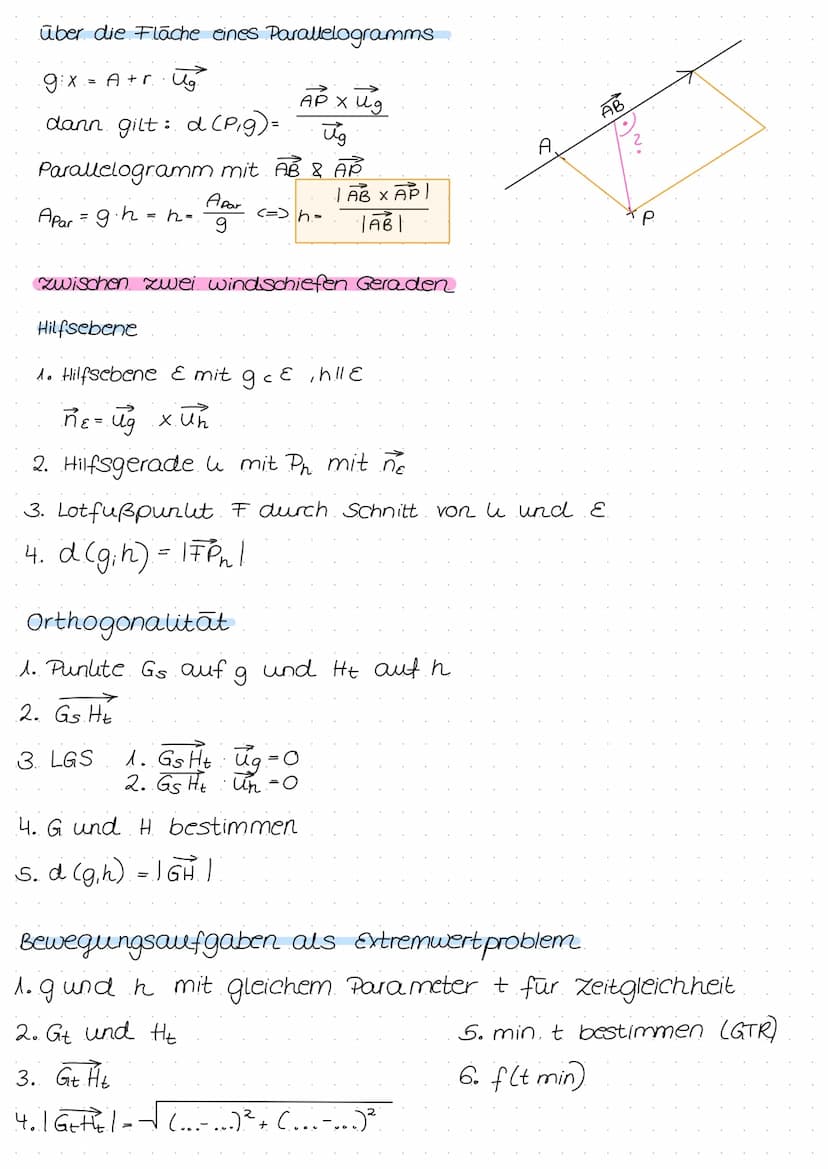 über die Fläche eines Parallelogramms
g:x = A + r · u⃗g
dann gilt: d(P,g) = (A⃗P⃗ × u⃗g) / u⃗g
Parallelogramm mit A⃗B⃗ & A⃗P⃗
APar = g · h = h = APar / g <=> h = |A⃗B⃗ × A⃗P⃗| / |A⃗B⃗|
A
A⃗B⃗
?
P
zwischen zwei windschiefen Geraden
Hilfsebene
1. Hilfsebene ε mit g ⊂ ε , h || ε
n⃗ε = u⃗g × u⃗h
2. Hilfsgerade k mit Ph mit n⃗ε
3. Lotfußpunkt F durch Schnitt von k und ε
4. d(g;h) = |F⃗P⃗h|
Orthogonalität
1. Punkte Gs auf g und Ht auf h
2. G⃗sH⃗t
3. LGS 1. G⃗sH⃗t · u⃗g = 0
2. G⃗sH⃗t · u⃗h = 0
4. G und H bestimmen
5. d(g,h) = |G⃗H⃗|
Bewegungsaufgaben als Extremwertproblem
1. g und h mit gleichem Parameter t für Zeitgleichheit
2. Gt und Ht
3. G⃗tH⃗t
4. |G⃗tH⃗t| = √(...-...)² + (...-...)²
5. min. t bestimmen (GTR)
6. f(t min)